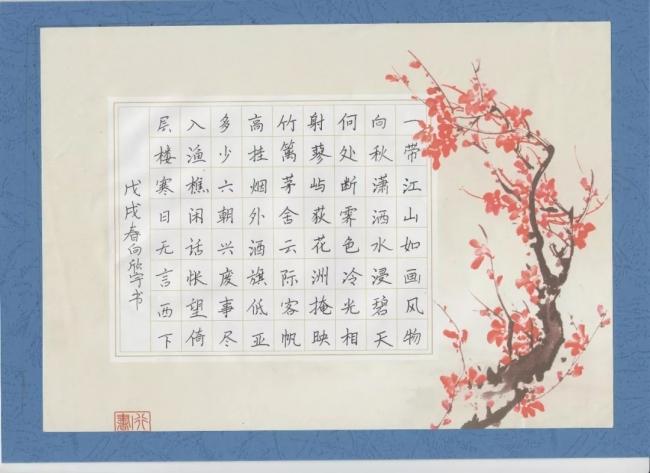 一带江山如画风物
向秋潇洒水浸碧天
何处断霁色冷光相
射蓼屿荻花洲掩映
竹篱茅舍云际客帆
高挂烟外酒旗低亚
多少六朝兴废事尽
入渔樵闲话怅望倚
层楼寒日无言西下
戊戌春向欣宇书